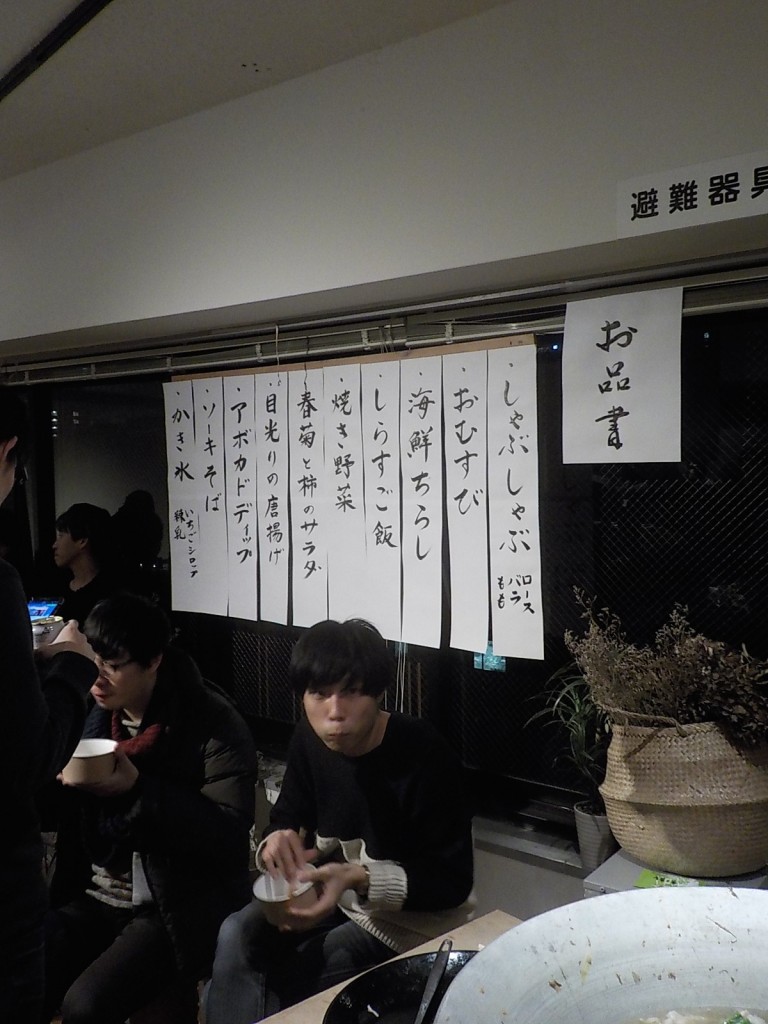 避難器具
お品書
・しゃぶしゃぶ
ロース
バラ
もも
・おむすび
・海鮮ちらし
・しらすご飯
・焼き野菜
・春菊と柿のサラダ
・目光りの唐揚げ
・アボカドディップ
・ソーキそば
・かき氷
いちごシロップ
練乳